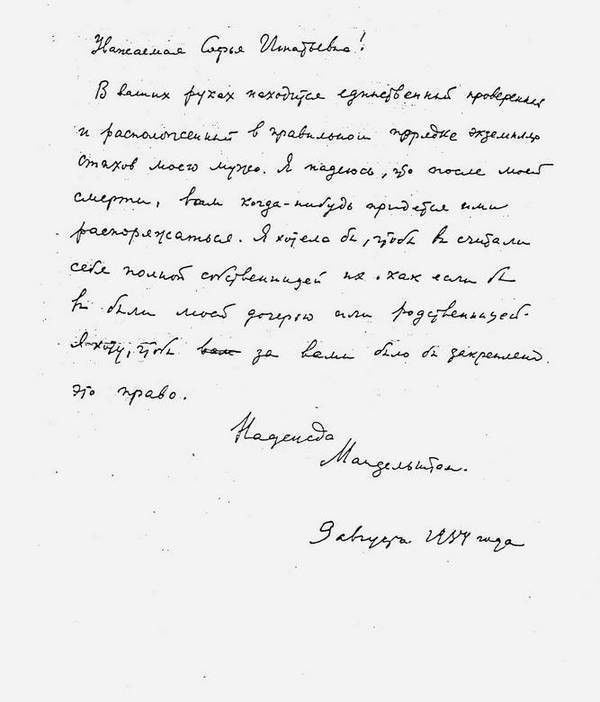 Уважаемая Софья Игнатьевна!
В ваших руках находится единственный проверенный
и расположенный в правильном порядке экземпляр
стихов моего мужа. Я надеюсь, что после моей
смерти, вам когда-нибудь придется ими
распоряжаться. Я хотела бы, чтобы вы считали
себя полной собственницей их, как если бы
вы были моей дочерью или родственницей.
Я хочу, чтобы вам за вами было бы закреплено
это право.
Надежда
Мандельштам.
9 августа 1954 года